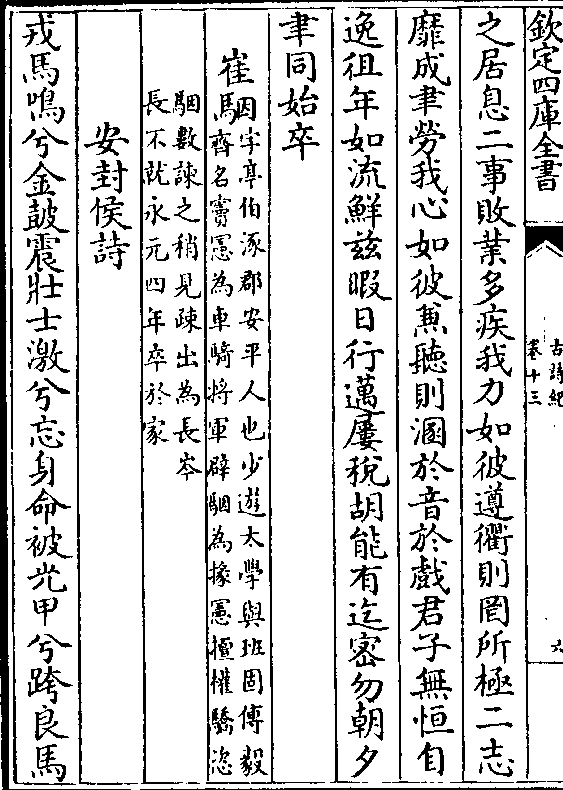 欽定四庫全書
古詩紀
卷十三
六
之居息二事敗業多疾我力如彼遵衢則罔所極二志
靡成聿勞我心如彼兼聽則溷於音於戲君子無恒自
逸徂年如流鮮兹暇日行邁屢稅胡能有迄密勿朝夕
聿同始卒
崔駰字亭伯涿郡安平人也少遊太學與班固傅毅
齊名竇憲為車騎將軍辟駰為掾憲擅權驕恣
駰數諫之稍見疎出為長岑
長不就永元四年卒於家
安封侯詩
戎馬鳴兮金鼓震壯士激兮忘身命被光甲兮跨良馬